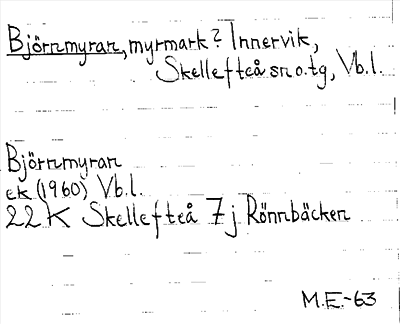 Björnmyran, myrmark? Innervik,
Skellefteå sn o. tg, Vb. l.
Björnmyran
ek (1960) Vb. l.
22 K Skellefteå 7j Rönnbäcken
M.E.-63